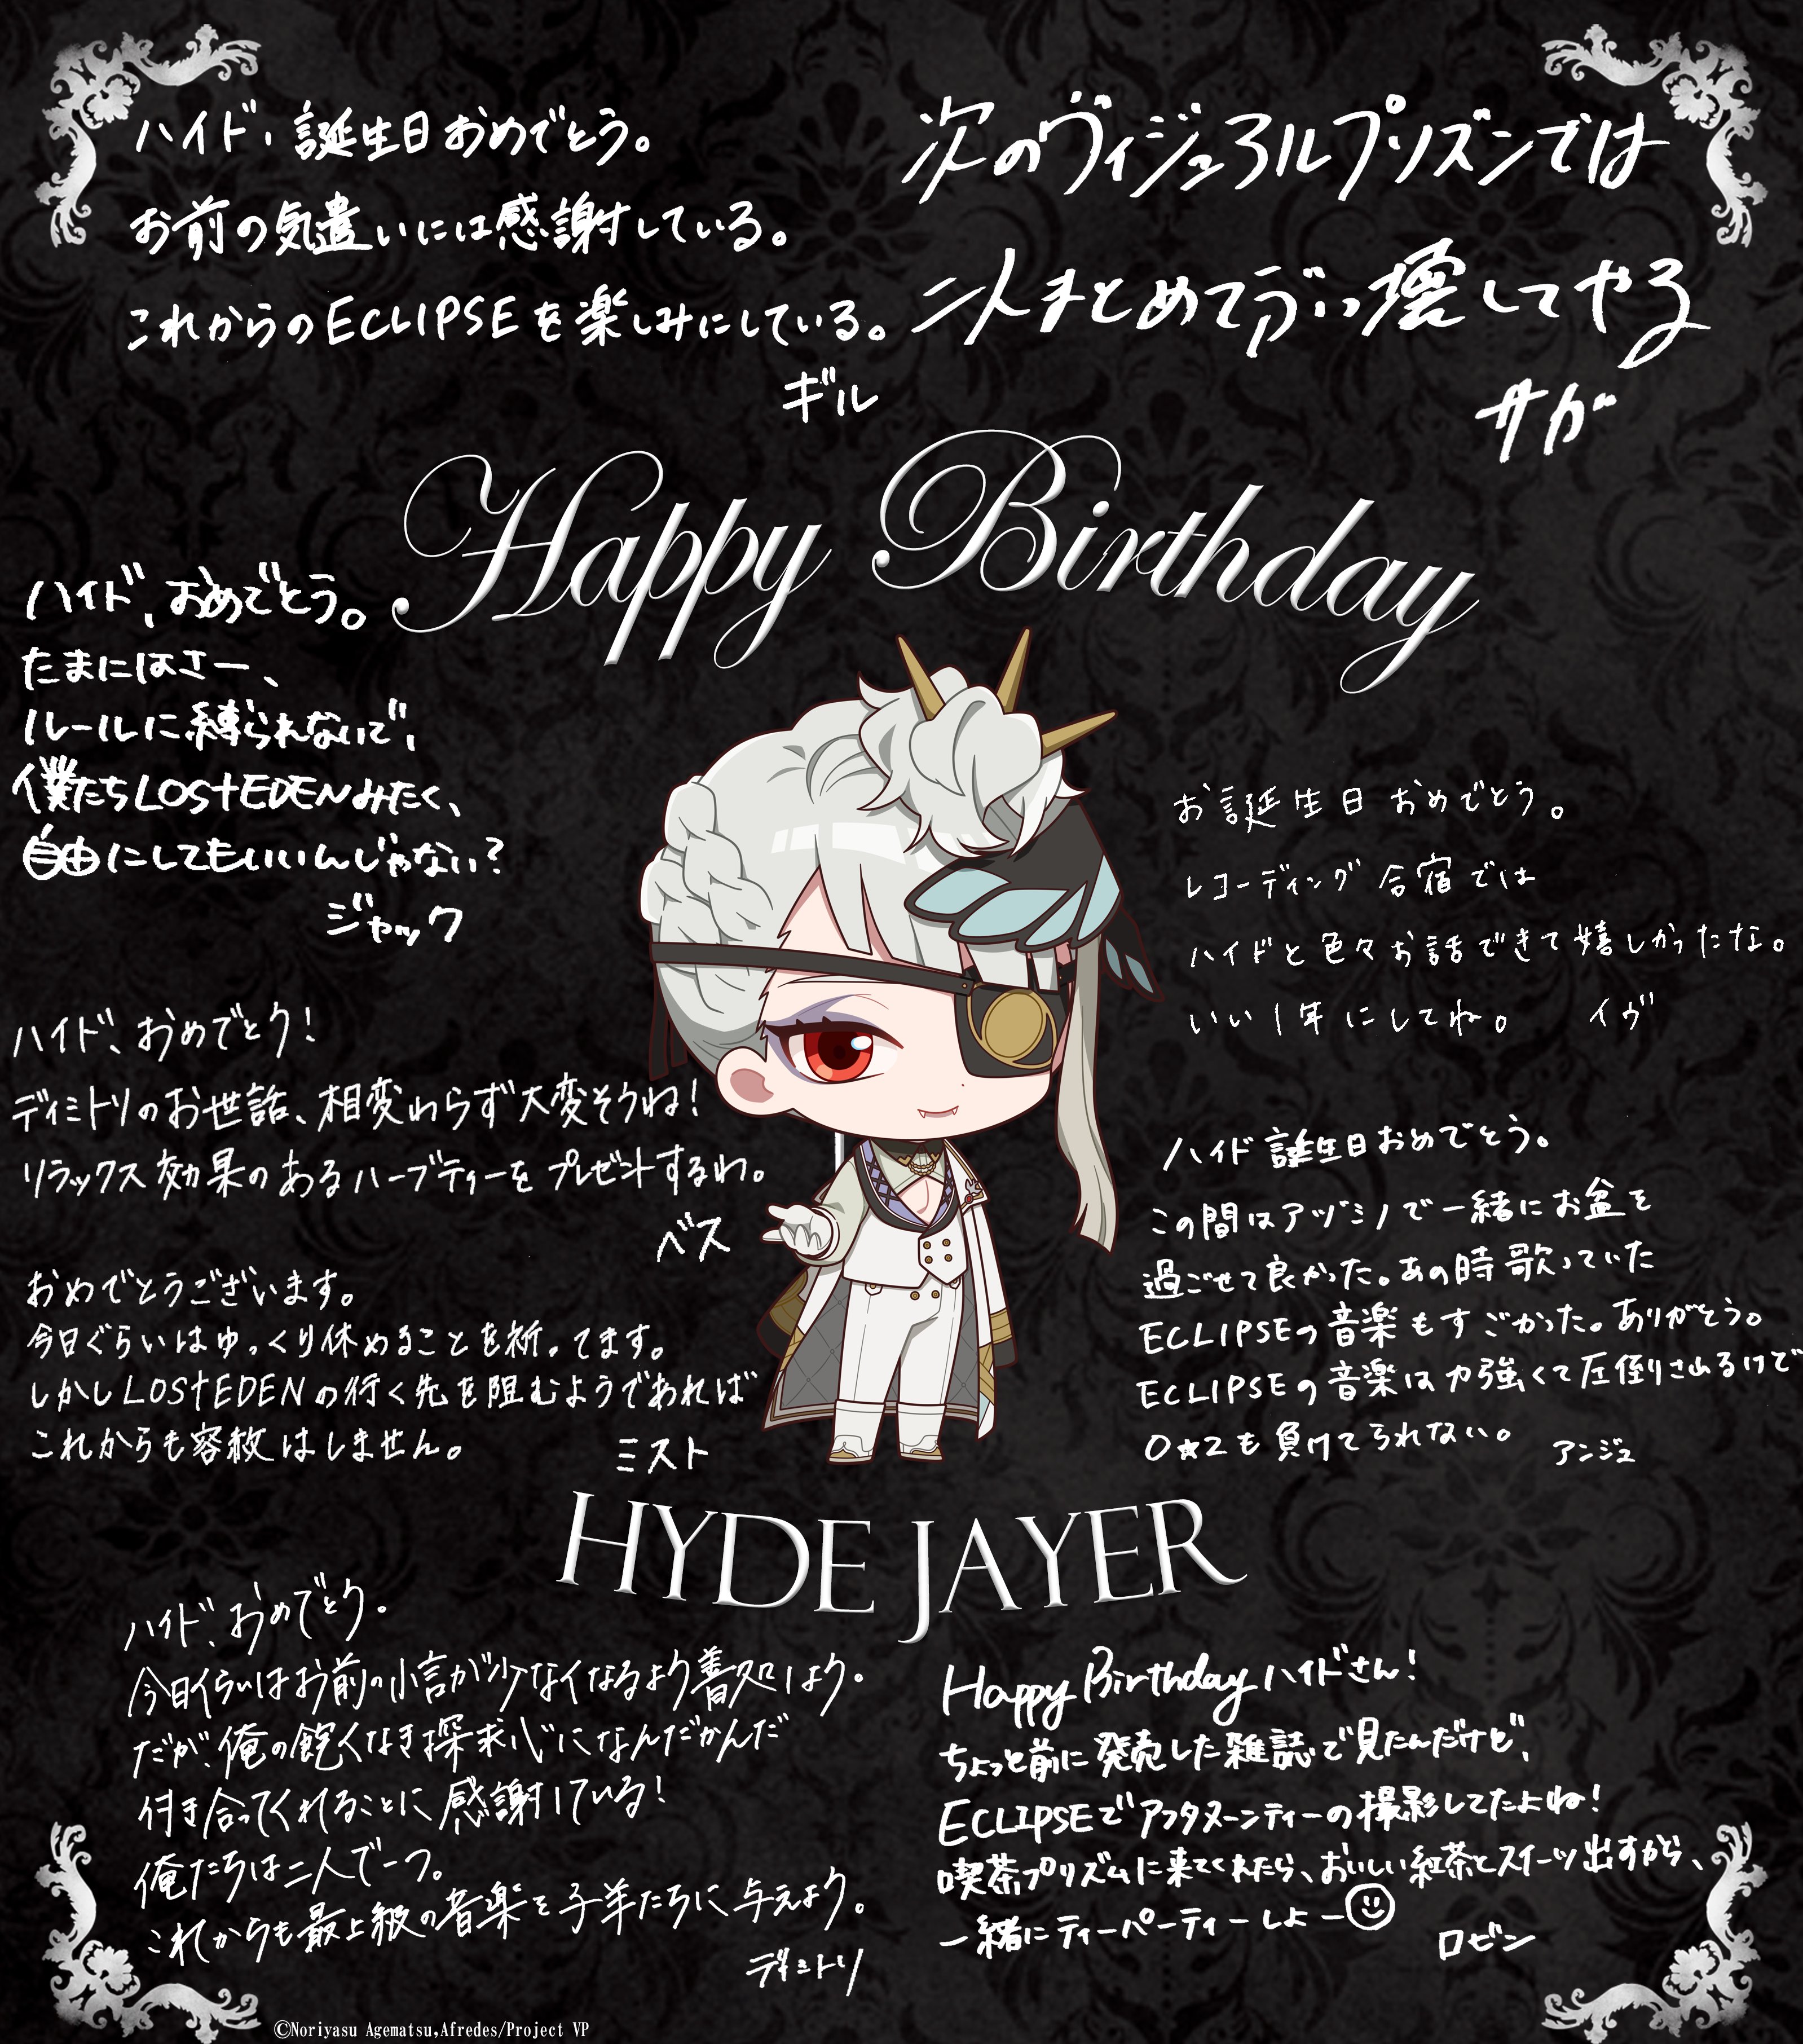 ハイド、誕生日おめでとう。
お前の気遣いには感謝している。
これからのECLIPSEを楽しみにしている。
ギル
次のヴィジュアルプリズンでは
二人まとめてぶっ壊してやる
サガ
Happy Birthday
ハイド、おめでとう。
たまにはさー、
ルールに縛られないで、
僕たちLOS†EDENみたく、
自由にしてもいいんじゃない?
ジャック
お誕生日おめでとう。
レコーディング合宿では
ハイドと色々お話できて嬉しかったな。
いい1年にしてね。 イヴ
ハイド、おめでとう!
ディミトリのお世話、相変わらず大変そうね!
リラックス効果のあるハーブティーをプレゼントするわ。
ベス
ハイド 誕生日おめでとう。
この間はアヅミノで一緒にお盆を
過ごせて良かった。あの時歌っていた
ECLIPSEの音楽もすごかった。ありがとう。
ECLIPSEの音楽は力強くて圧倒されるけど
O★Zも負けてられない。 アンジュ
おめでとうございます。
今日ぐらいはゆっくり休めることを祈ってます。
しかしLOS†EDENの行く先を阻むようであれば
これからも容赦はしません。
ミスト
HYDE JAYER
ハイド、おめでとう。
今日くらいはお前の小言が少なくなるよう善処しよう。
だが、俺の飽くなき探求心になんだかんだ
付き合ってくれることに感謝している!
俺たちは二人で一つ。
これからも最上級の音楽を子羊たちに与えよう。
ディミトリ
Happy Birthday ハイドさん!
ちょっと前に発売した雑誌で見たんだけど、
ECLIPSEでアフタヌーンティーの撮影してたよね!
喫茶プリズムに来てくれたら、おいしい紅茶とスイーツ出すから、
一緒にティーパーティーしよー☺
ロビン
©Noriyasu Agematsu,Afredes/Project VP